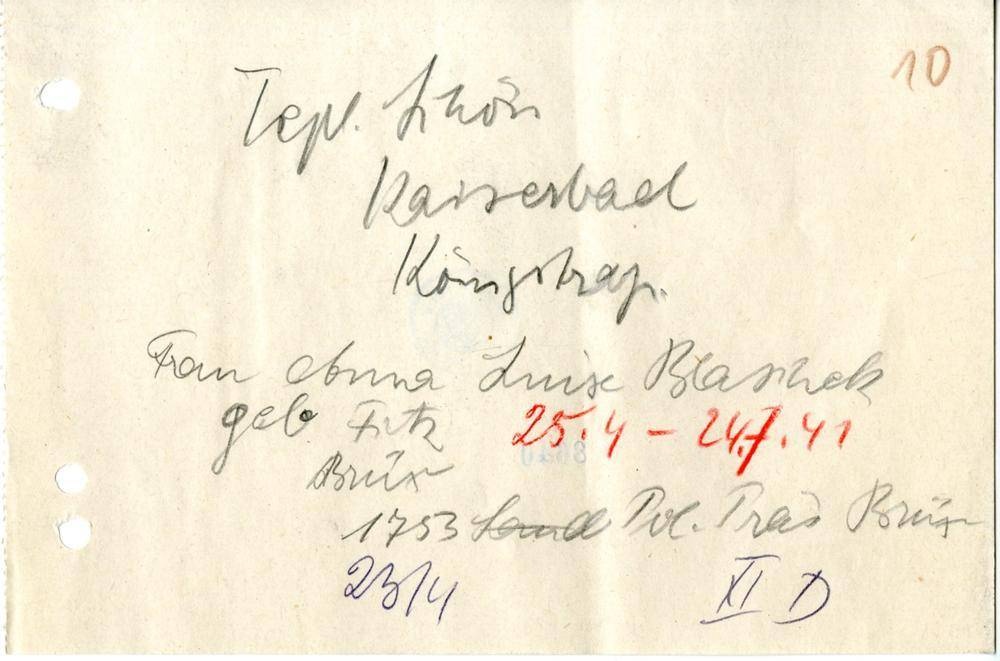 10
Tepl. Schön
Kaiserbad
Königstraß.
Frau Anna Luise Blaschek
geb Fritz 25.4 – 24.7.41
Brüx
1753 Land Pol. Präs Brüx
23/4 XI D